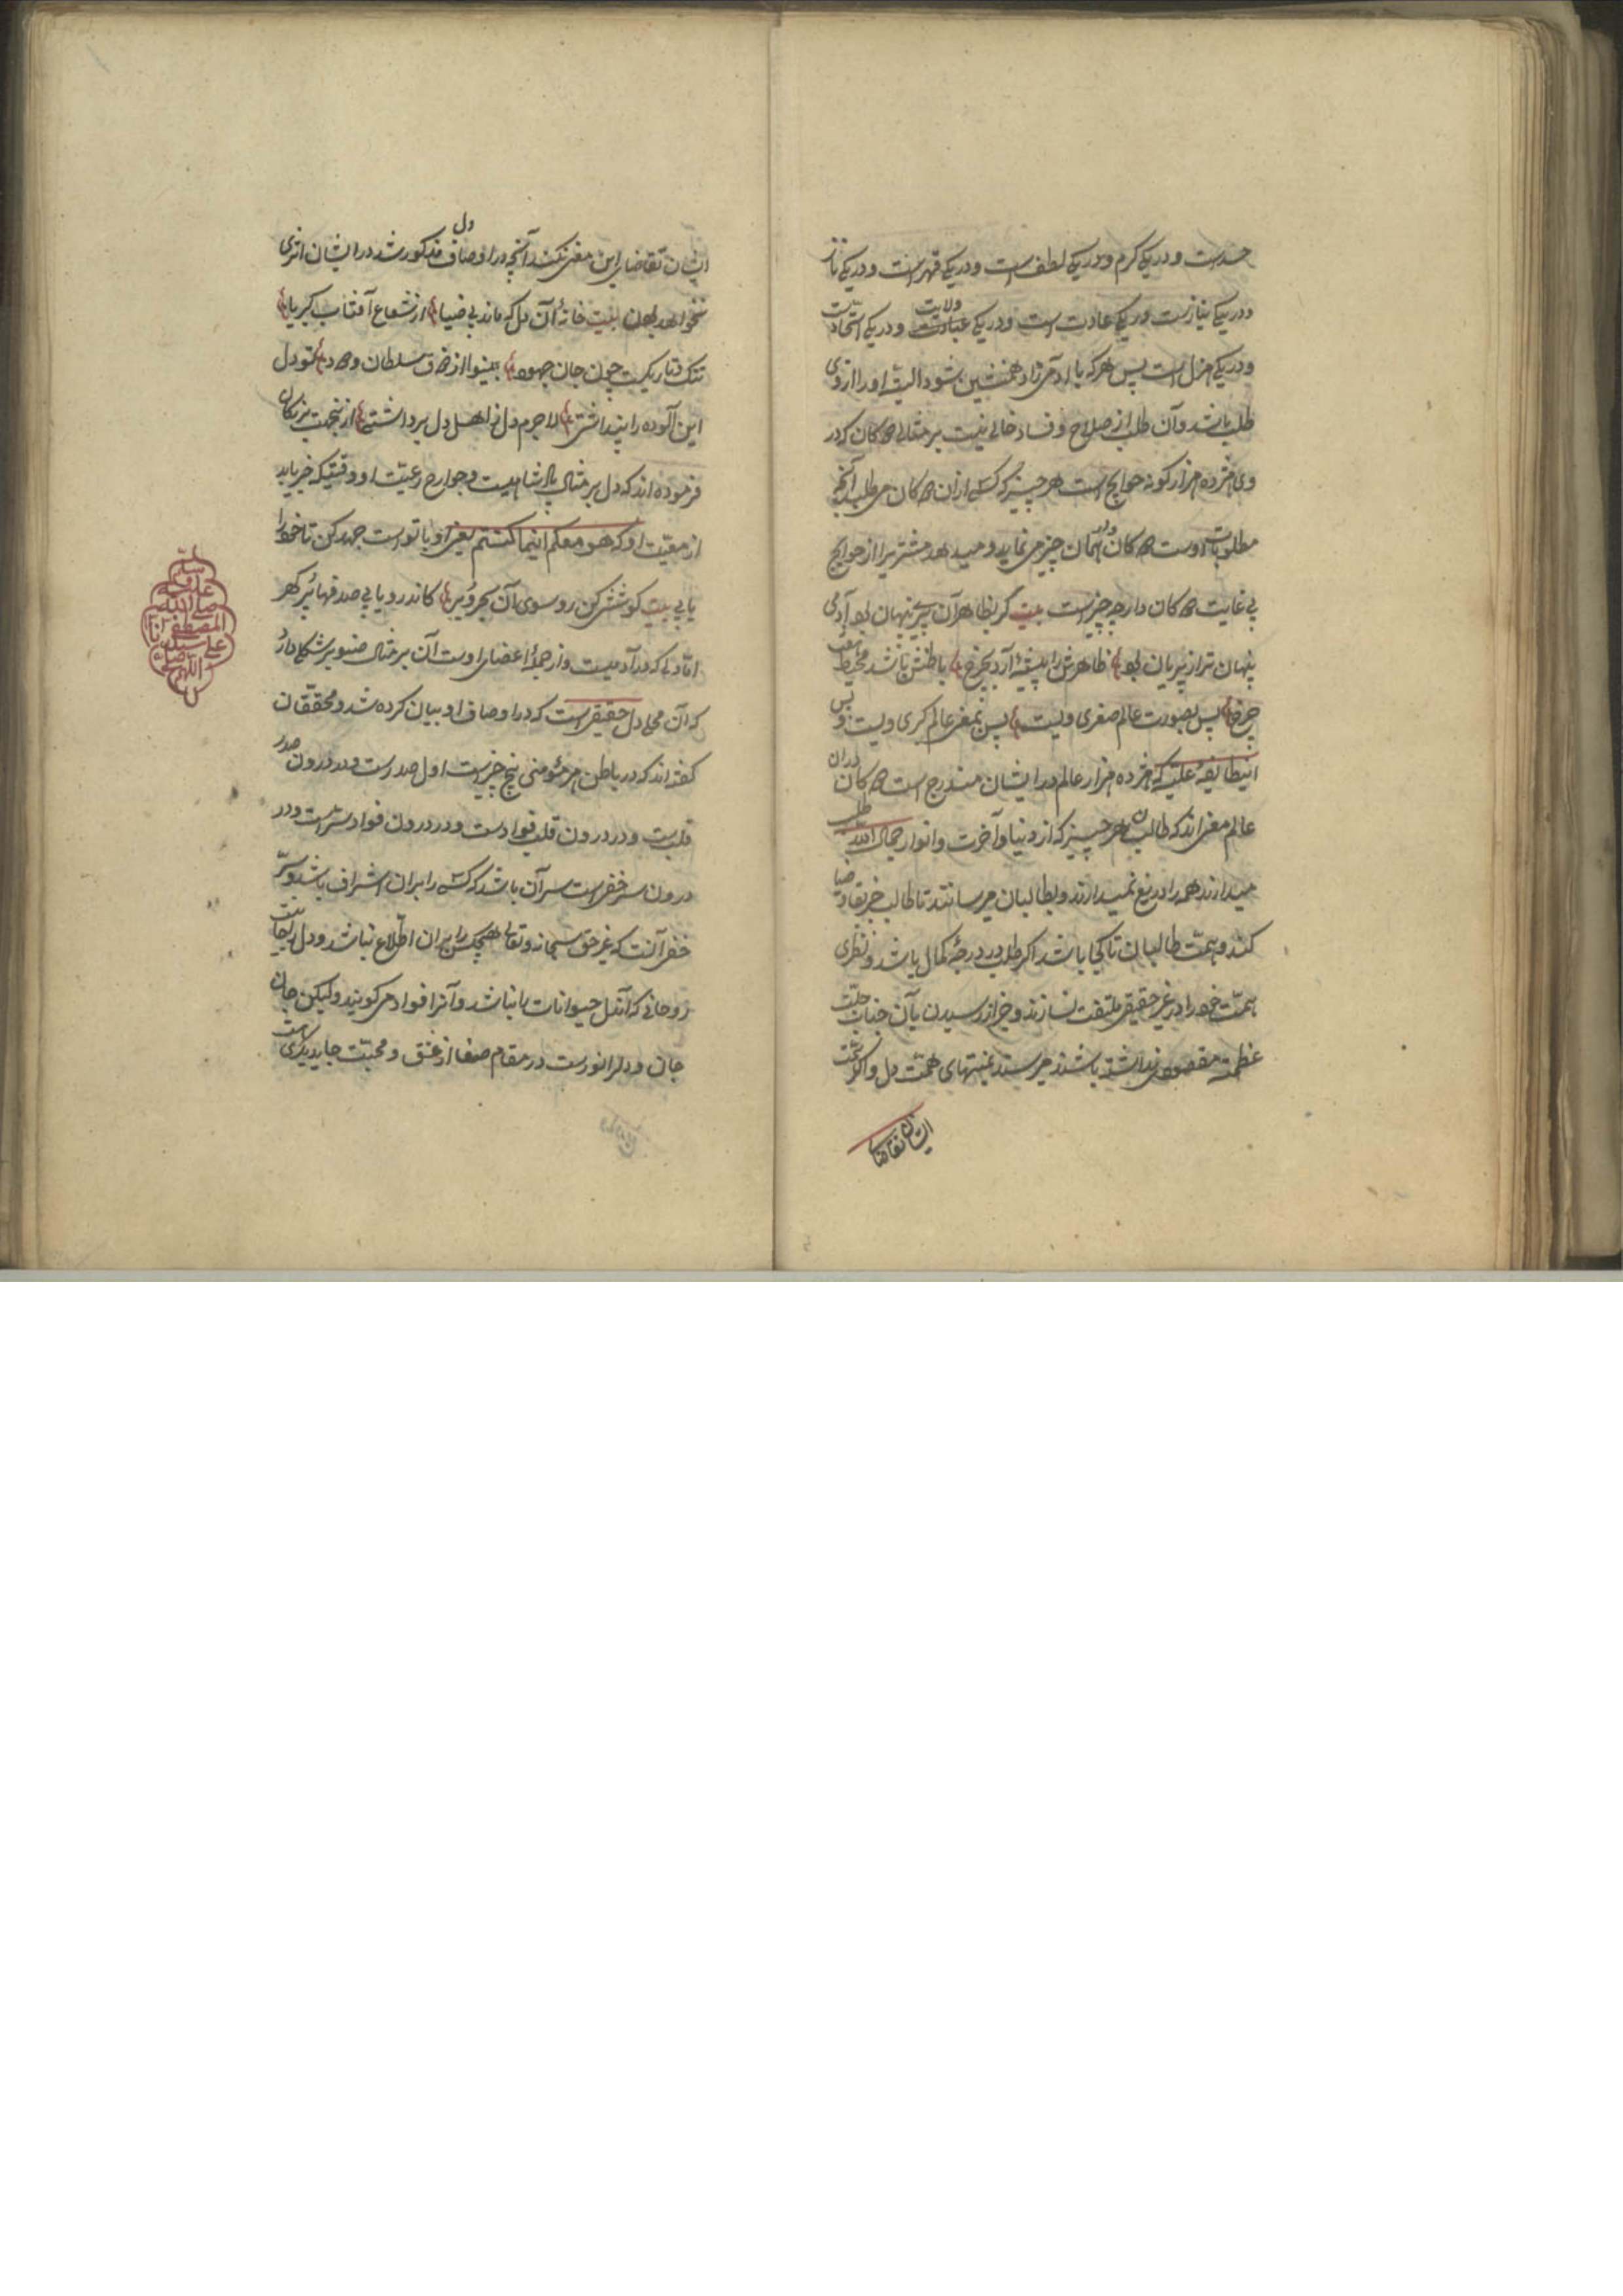 حسد است و در یکی کرم و در یکی لطف است و در یکی قهر است و در یکی ناز
و در یکی نیاز است و در یکی عادت است و در یکی عبادت ولایت و در یکی اتحاد است
و در یکی هزل است پس هر که با آدمی زاد همنشین شود البته او را ازوی
طلب باشد و آن طلب از صلاح و فساد خالی نیست بر مثالی دکان که در
وی هژده هزار گونه حوایج است هر چیز که کسی از آن دکان می طلبد آنچه
مطلوبات اوست دکان دار همان چیز می نماید و میدهد مشتریرا از حوایج
بی غایت دکان دار چه چیز است بیت گر بظاهر آن پری پنهان بود آدمی
پنهان تر از پریان بود ظاهرش را پشهٔ آرد بچرخ باطنش باشد محیط هفت
چرخ پس بصورت عالم صغری ویست پس بمعنی عالم کبری ویست و پس
اینطایفهٔ علیّه که هژده هزار عالم در ایشان مندرج است دکان داران
عالم معنی اند که طالب هر چیز که از دنیا و آخرت و انوار جمال الله طلب
میدارند همه را دریغ نمیدارند و بطالبان میرسانند تا طالب خبر تقاضا
کند و همّت طالبان تا کجا باشد اگر طلب در درجهٔ کمال باشد و نظری
همّت خود را در غیر حقیقی ملتفت نسازند و جز از رسیدن بآن جناب جلّت
عظمته مقصودی نداشته باشند میرسند بمنتهای همّت دل و اگر همّت
ایشان تقاضای
ایشان تقاضای این معنی نکند آنچه در اوصاف دل مذکور شد در ایشان اثری
نخواهد بود بیت خانهٔ آن دل که ماند بی ضیا از شعاع آفتاب کبریا
تنگ و تاریکست چون جان جهود بینوا از ذوق سلطان ودود تو دل
این آلوده را پنداشتی لاجرم دل ز اهل دل برداشتی ازینجهت بزرگان
فرموده اند که دل بر مثال پادشاهیست و جوارح رعیّت او وقتیکه خبر یابد
از معیّت او که هو معکم اینما کنتم یعنی او با تو است جهد کن تا خود را
یابی بیت کوششی کن رو سوی آن بحر و بین کاندر و یابی صدفهای پر گهر
امّا دلی که در آدمیست و از جملهٔ اعضای اوست آن بر مثال صنوبر شکلی دارد
که آن محل دل حقیقی است که در اوصاف او بیان کرده شد و محققان
گفته اند که در باطن هر مؤمنی پنج چیز است اول صدر است و در درون صدر
قلب است و در درون قلب فواد است و در درون فواد سرّ است و در
درون سرّ خفی است سر آن باشد که کسی را بر آن اشراف باشد و سرّ
خفی آنست که غیر حق سبحانه و تعالی هیچکس را بر آن اطّلاع نباشد و دل را جانیست
روحانی که آن دل حیوانات را نباشد و آنرا فواد می گویند و لیکن جان
جان و دل را نور است در مقام صفا از عشق و محبّت جای دیگری است
اللهم صل
علی سیدنا
المصطفی
صلی الله
علیه و
سلم